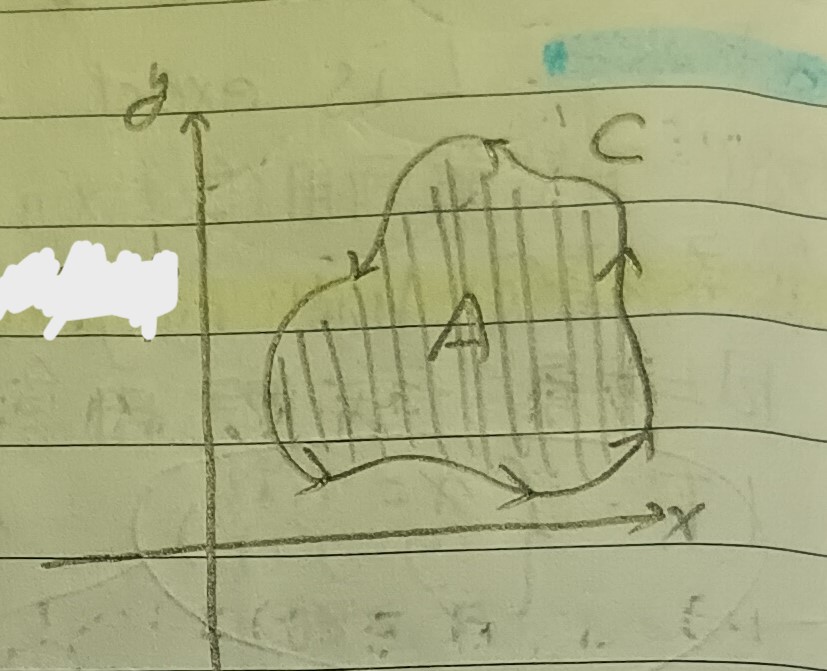 y
C
A
x